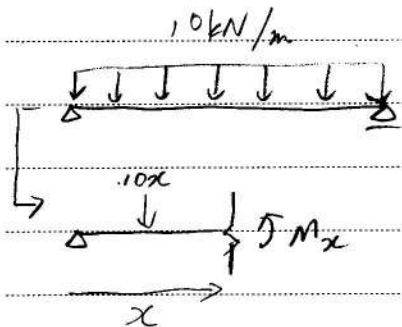 10kN/m
10x
Mx
x